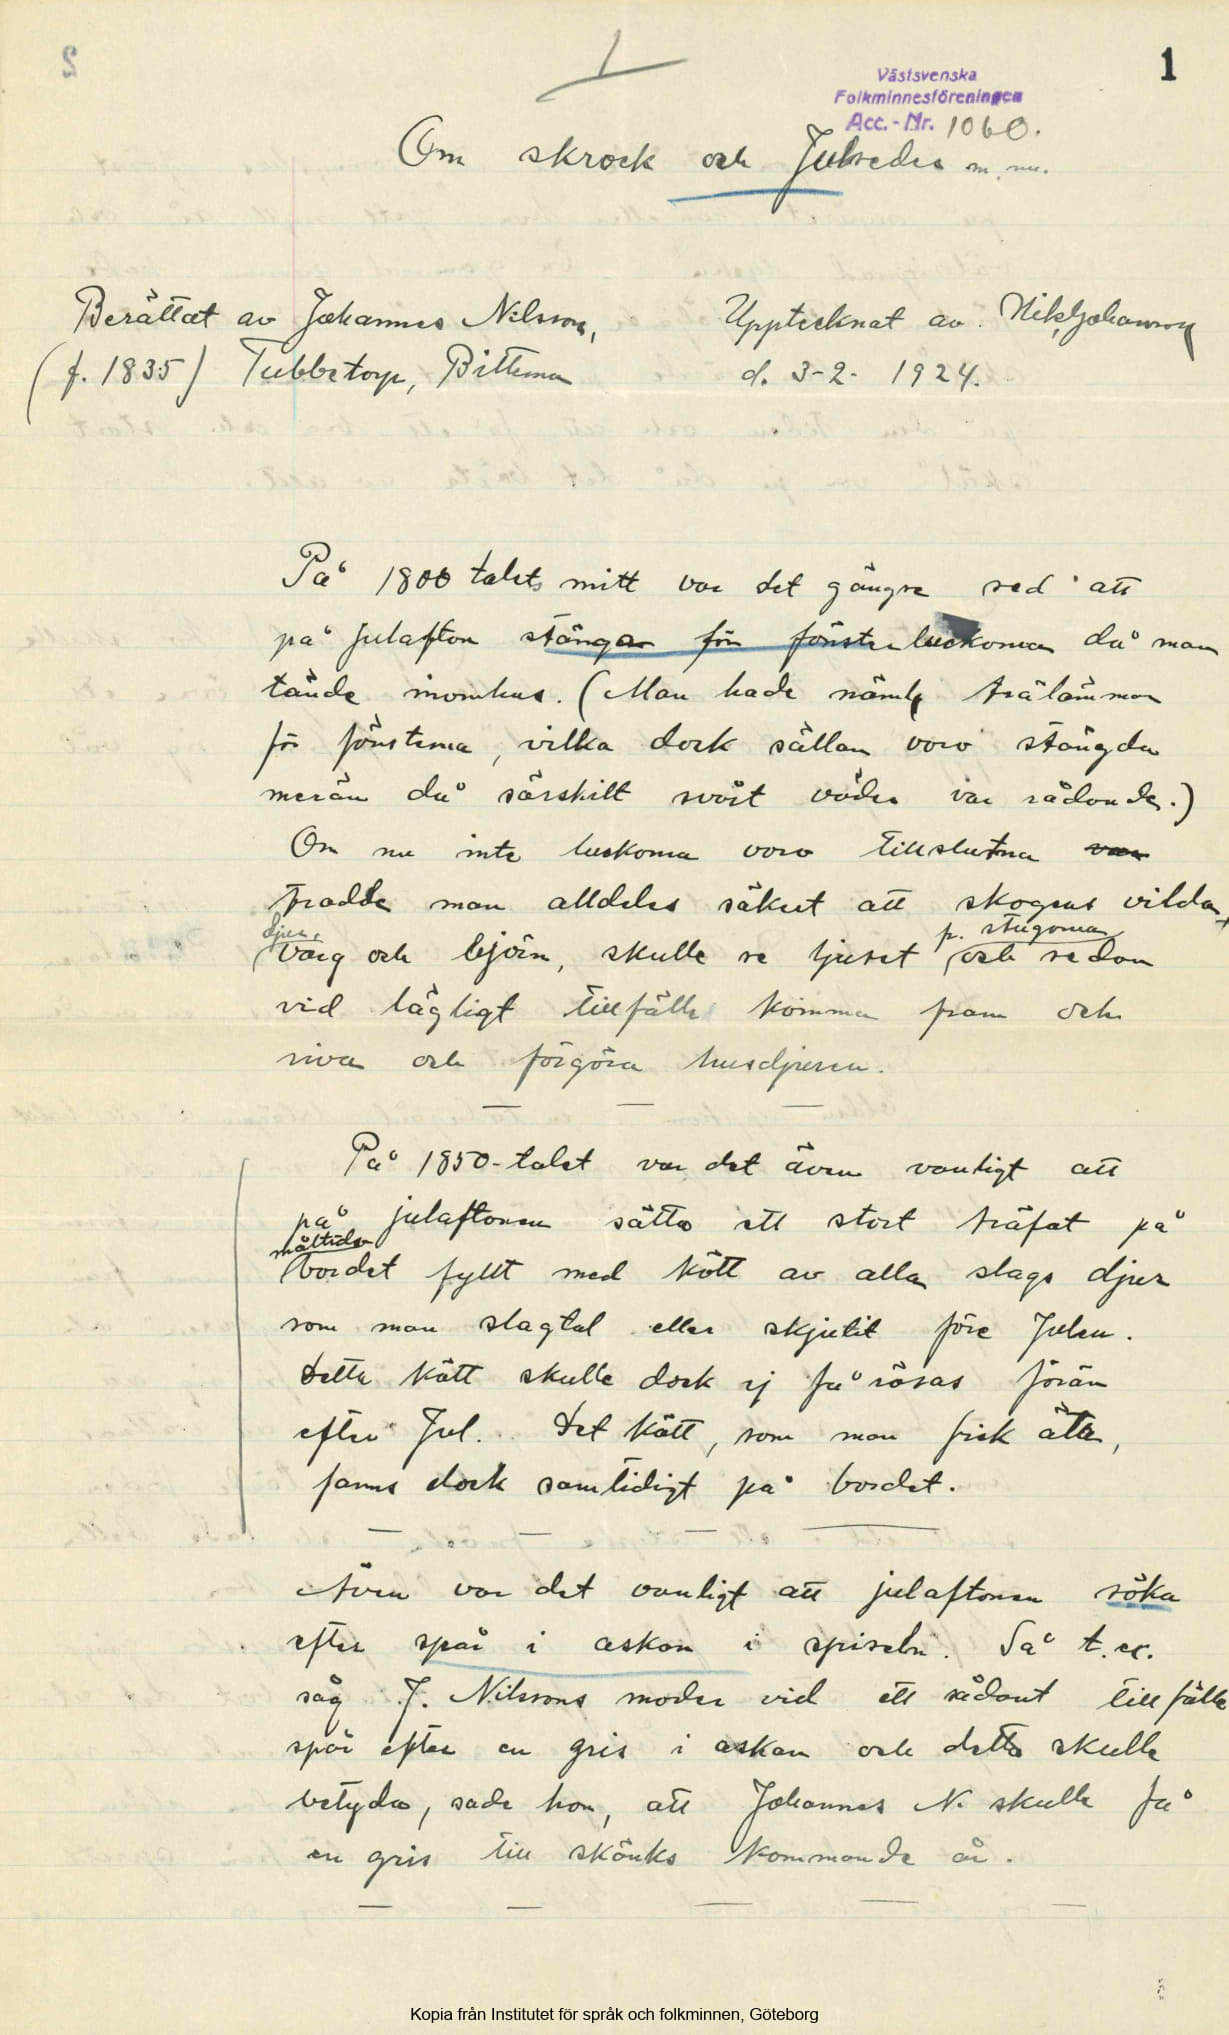 1
1
Västsvenska
Folkminnesföreningen
Acc.-Nr. 1060.
Om skrock och Julseder m. m.
Berättat av Johannes Nilsson,
(f. 1835) Tubbetorp, Bitterna
Upptecknat av Nik. Johansson
d. 3-2- 1924.
På 1800 talets mitt var det gängse sed att
på julafton stänga för fönsterluckorna då man
tände inomhus. (Man hade näml. trälämmar
för fönsterna, vilka dock sällan voro stängda
merän då särskilt svårt väder var rådande.)
Om nu inte luckorna voro tillslutna var
trodde man alldeles säkert att skogens vilda
djur, varg och björn, skulle se ljuset p. stugorna och sedan
vid lägligt tillfälle komma fram och
riva och förgöra husdjuren.
På 1850-talet var det även vanligt att
på julaftonen sätta ett stort träfat på
måltidsbordet fyllt med kött av alla slags djur
som man slagtat eller skjutit före Julen.
Detta kött skulle dock ej få röras förän
efter Jul. Det kött, som man fick äta,
fanns dock samtidigt på bordet.
Även var det vanligt att julaftonen söka
efter spår i askan i spiseln. Så t.ex.
såg J. Nilssons moder vid ett sådant tillfälle
spår efter en gris i askan och detta skulle
betyda, sade hon, att Johannes N. skulle få
en gris till skänks kommande år.
Kopia från Institutet för språk och folkminnen, Göteborg